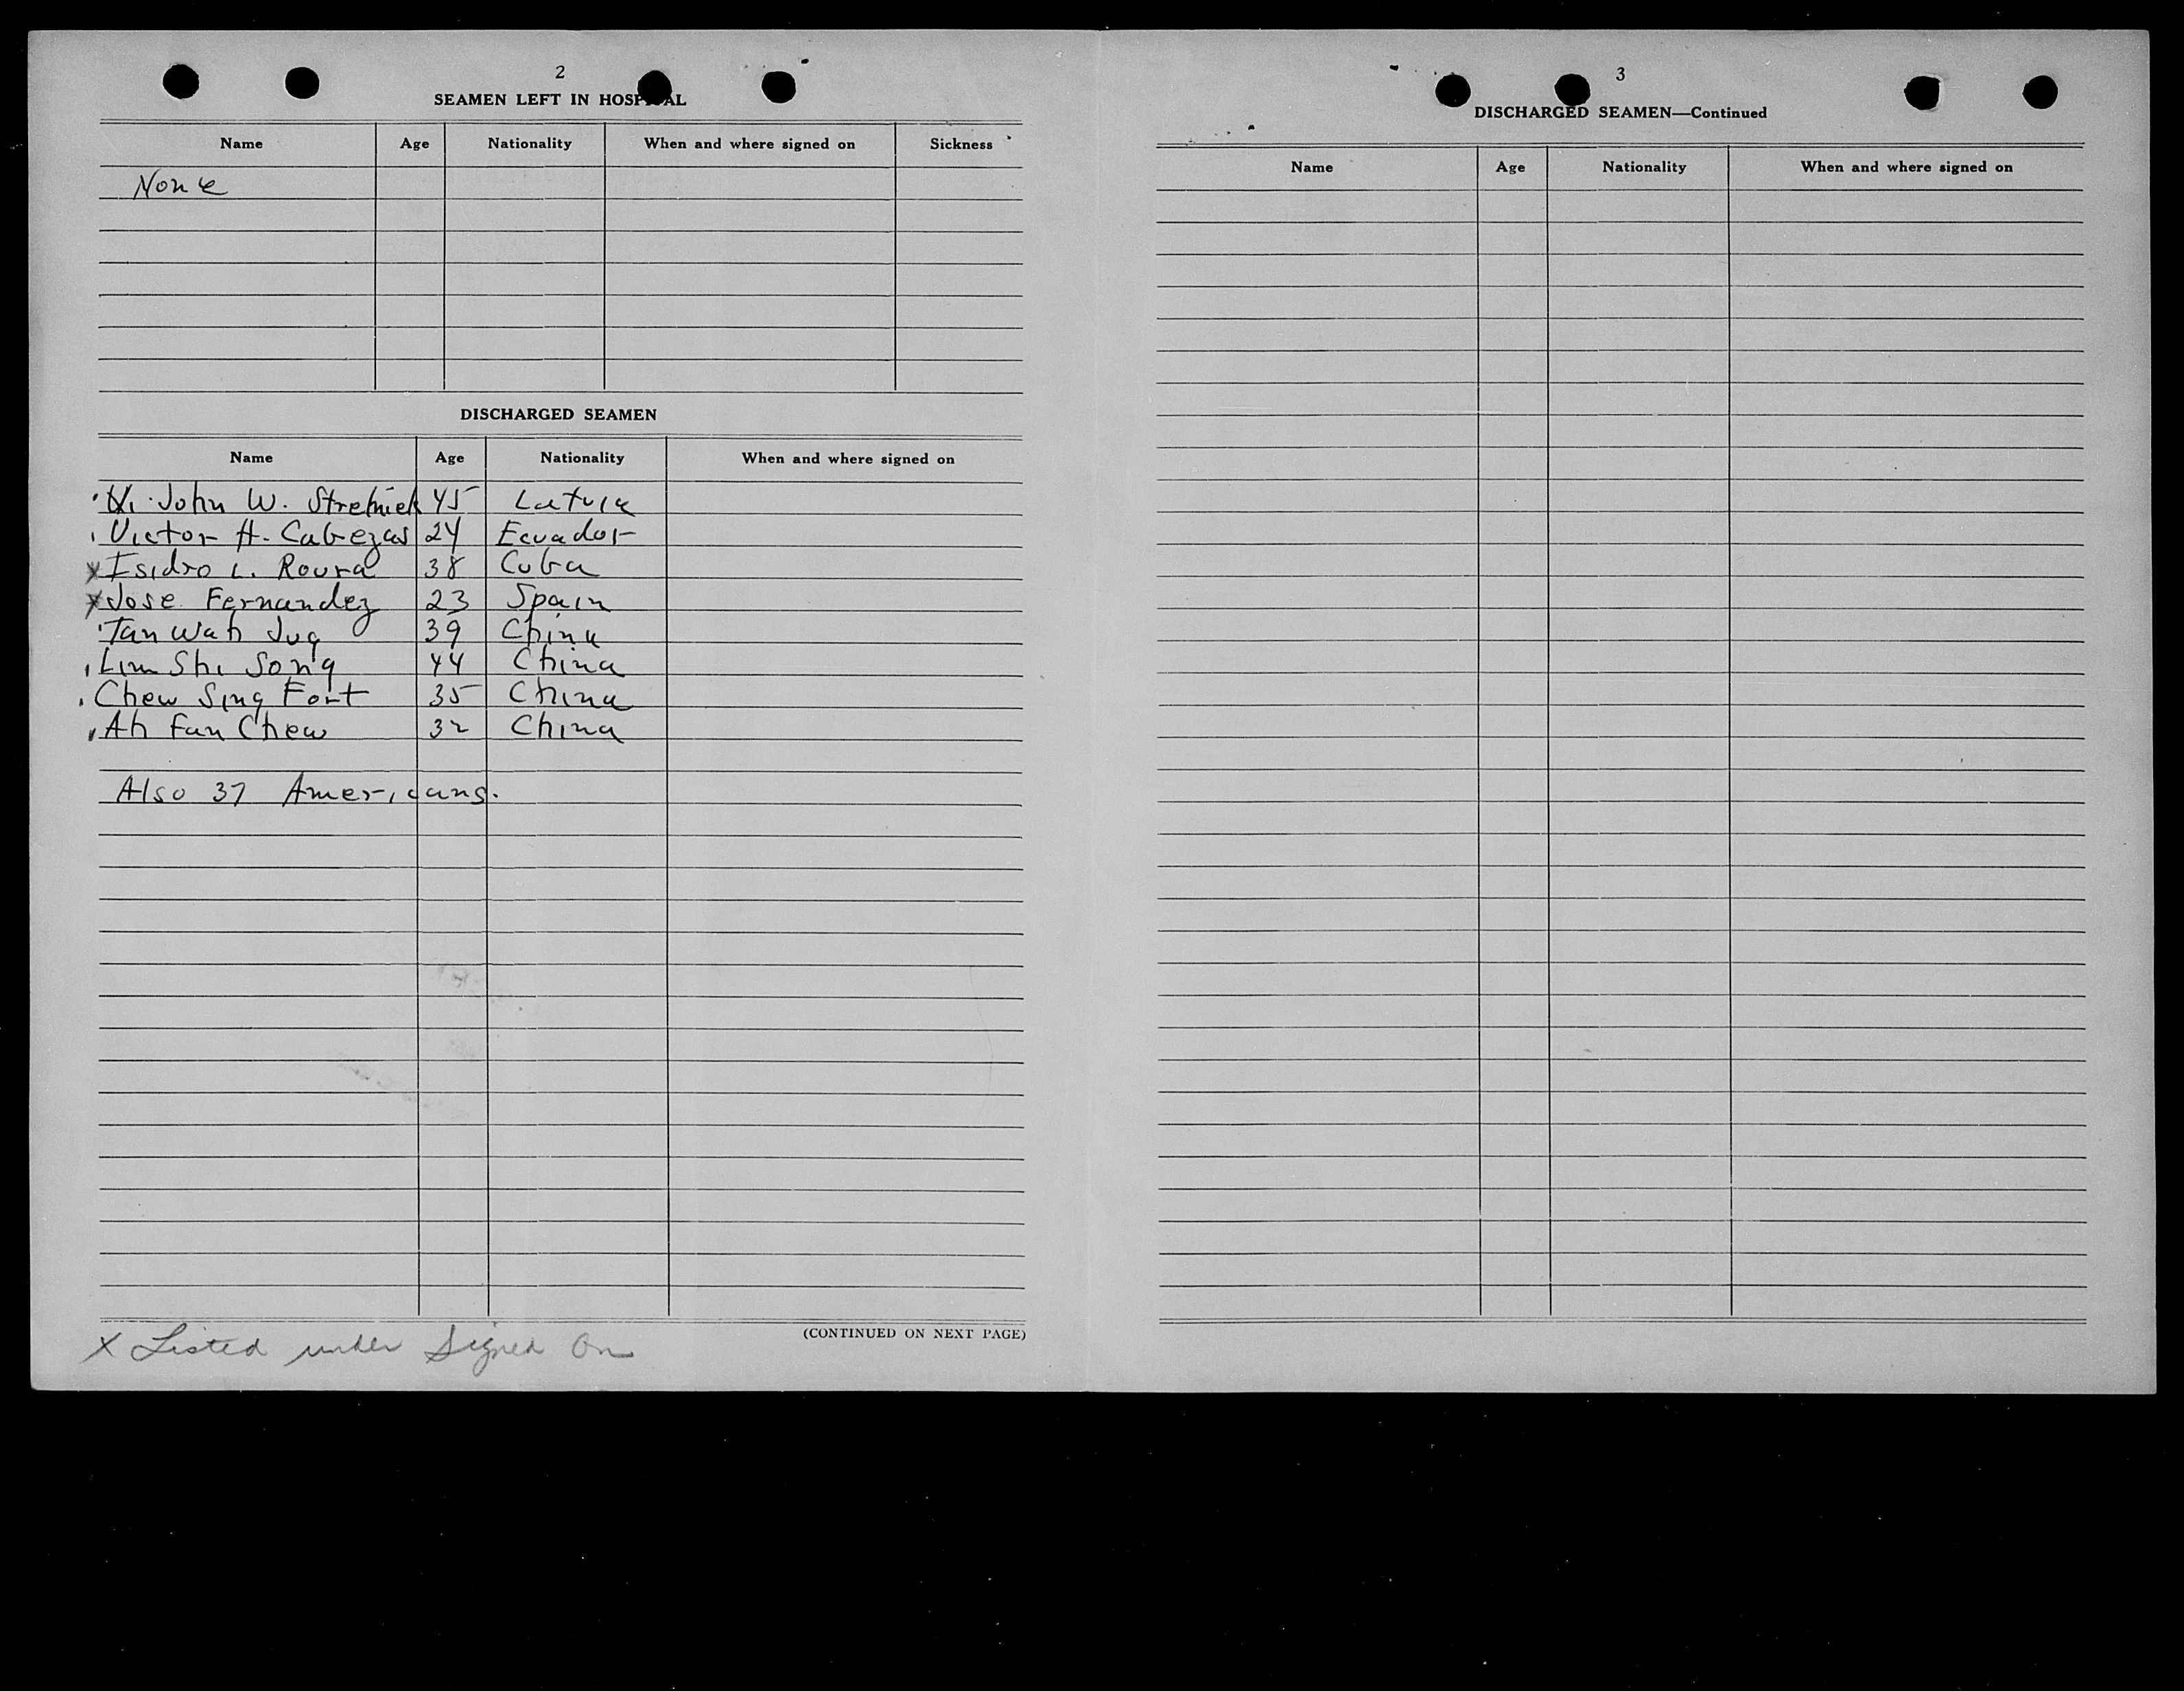 2
SEAMEN LEFT IN HOSPITAL
Name Age Nationality When and where signed on Sickness
None
DISCHARGED SEAMEN
Name Age Nationality When and where signed on
John W. Strelnick 45 Latvia
Victor H. Cabezas 24 Ecuador
x Isidro L. Roura 38 Cuba
x Jose Fernandez 23 Spain
Tan Wah Jug 39 China
Lim Shi Song 44 China
Chew Sing Font 35 China
Ah Fan Chew 32 China
Also 37 Americans.
(CONTINUED ON NEXT PAGE)
x Listed under Signed On
3
DISCHARGED SEAMEN—Continued
Name Age Nationality When and where signed on